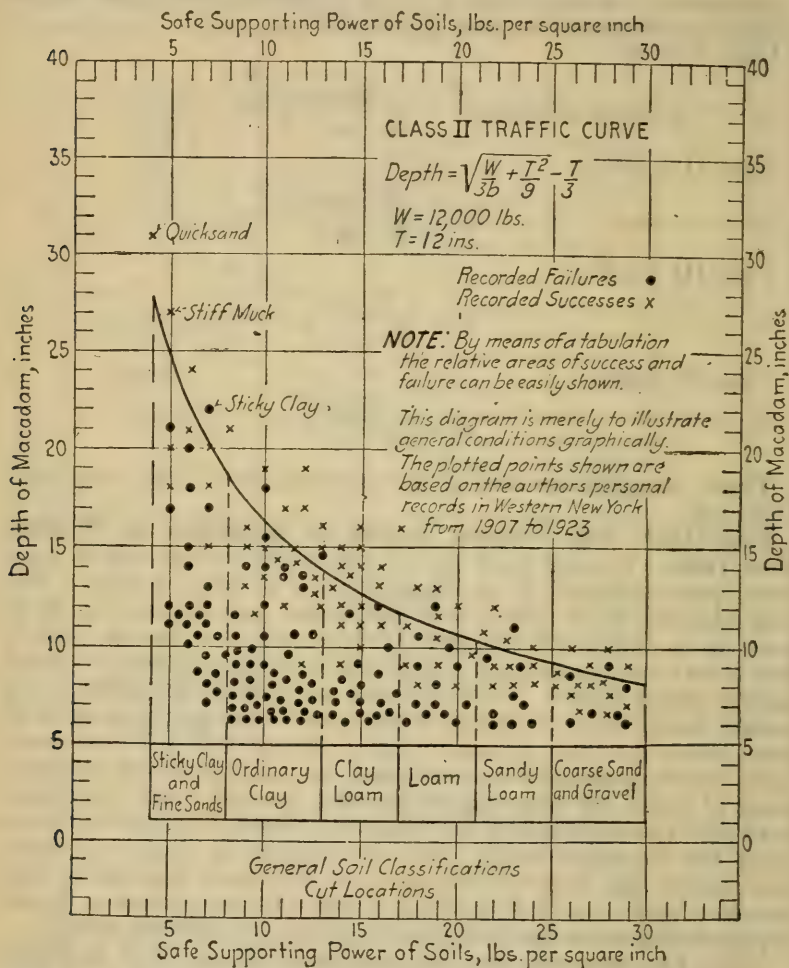 Safe Supporting Power of Soils, lbs. per square inch
5 10 15 20 25 30
40 40
35 35
30 30
25 25
20 20
15 15
10 10
5 5
0 0
Depth of Macadam, inches
Depth of Macadam, inches
CLASS II TRAFFIC CURVE
Depth = √W/3b + T²/9 - T/3
W = 12,000 lbs.
T = 12 ins.
Quicksand
Recorded Failures •
Recorded Successes x
Stiff Muck
NOTE: By means of a tabulation
the relative areas of success and
failure can be easily shown.
Sticky Clay
This diagram is merely to illustrate
general conditions graphically.
The plotted points shown are
based on the authors personal
records in Western New York
from 1907 to 1923
Sticky Clay
and
Fine Sands
Ordinary
Clay
Clay
Loam
Loam
Sandy
Loam
Coarse Sand
and Gravel
General Soil Classifications
Cut Locations
5 10 15 20 25 30
Safe Supporting Power of Soils, lbs. per square inch